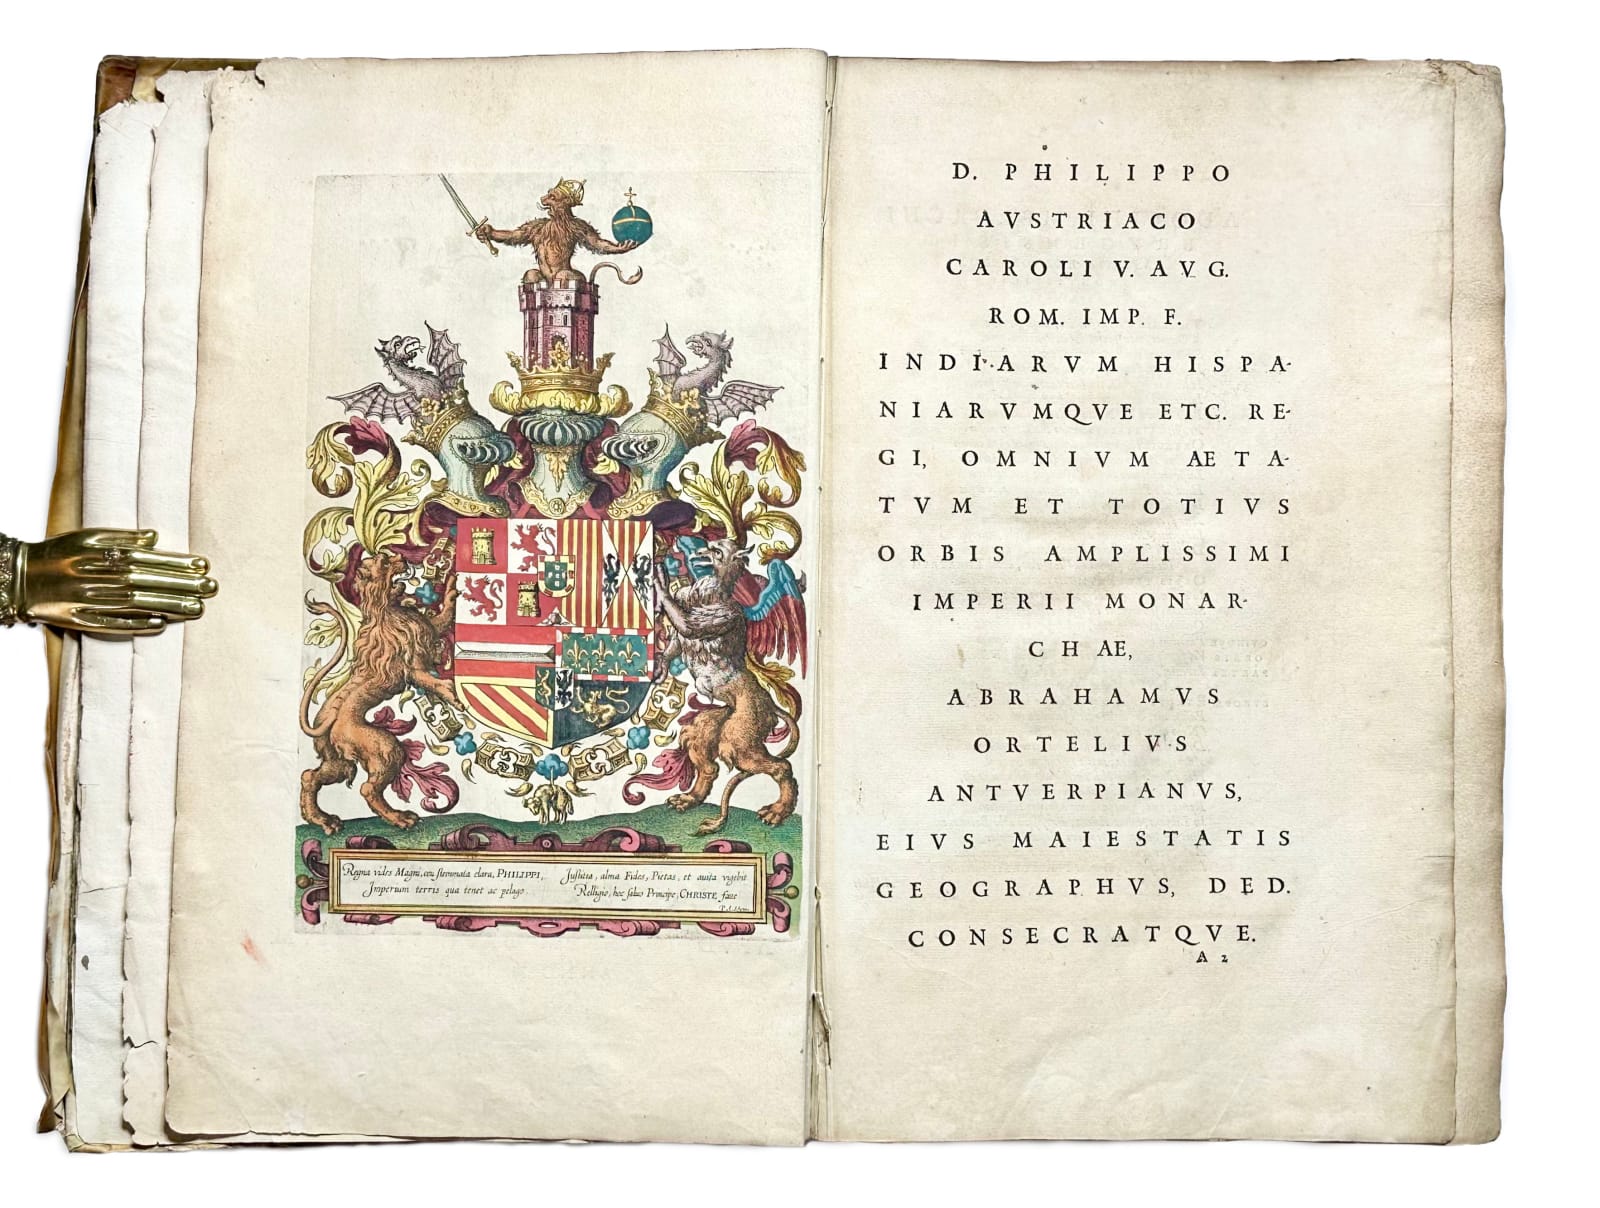 Regna vides Magni, ceu stemmata clara, PHILIPPI,
Imperium terris qua tenet ac pelago.
Justitia, alma Fides, Pietas, et auita vigebit
Relligio, hoc saluo Principe, CHRISTE faue
D. PHILIPPO
AVSTRIACO
CAROLI V. AVG.
ROM. IMP. F.
INDIARVM HISPA-
NIARVMQVE ETC. RE-
GI, OMNIVM ÆTA-
TVM ET TOTIVS
ORBIS AMPLISSIMI
IMPERII MONAR-
CHÆ,
ABRAHAMVS
ORTELIVS
ANTVERPIANVS,
EIVS MAIESTATIS
GEOGRAPHVS, DED.
CONSECRATQVE.
A 2